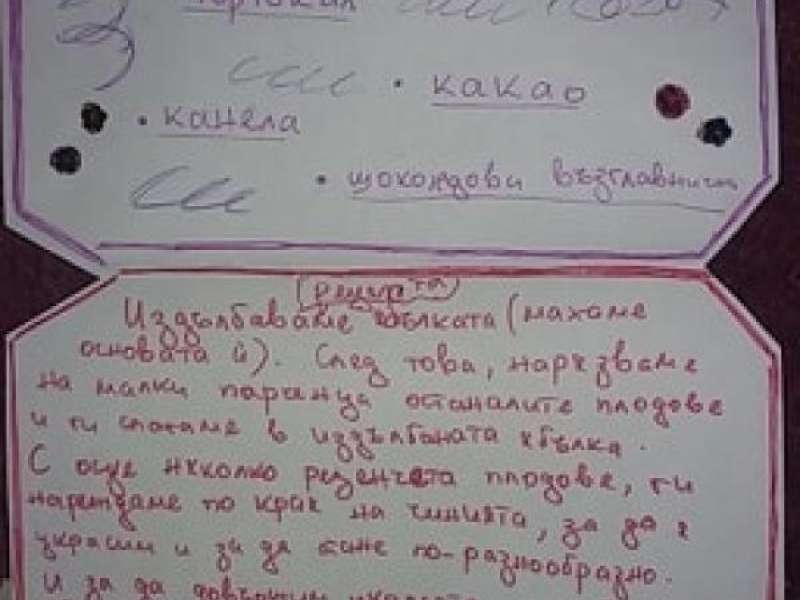 портокал
кокос
• какао
• канела
• шоколадови възглавнички
Рецепта
Издълбаваме ябълката (махаме
основата ѝ). След това, нарязваме
на малки парчнца останалите плодове
и ги слагаме в издълбаната ябълка.
С още няколко резенчета плодове, ги
нареждаме по края на чинията, за да я
украсим и за да стане по-разнообразно.
И за да довършим украсата